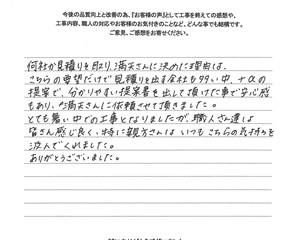 今後の品質向上と改善の為、『お客様の声』として工事を終えての感想や、
工事内容、職人の対応やお客様のお気付きのことなど、どんな事でも結構です。
ご意見、ご感想をお寄せください。
何社か見積りを取り、満天さんに決めた理由は、
こちらの要望だけで見積りを出す会社も多い中、+αの
提案で、分かりやすい提案書を出して頂けた事で安心感
もあり、満天さんに依頼させて頂きました。
とても暑い中での工事となりましたが、職人さん達は
皆さん感じ良く、特に親方さんはいつもこちらの気持ちを
汲んでくれました。
ありがとうございました。